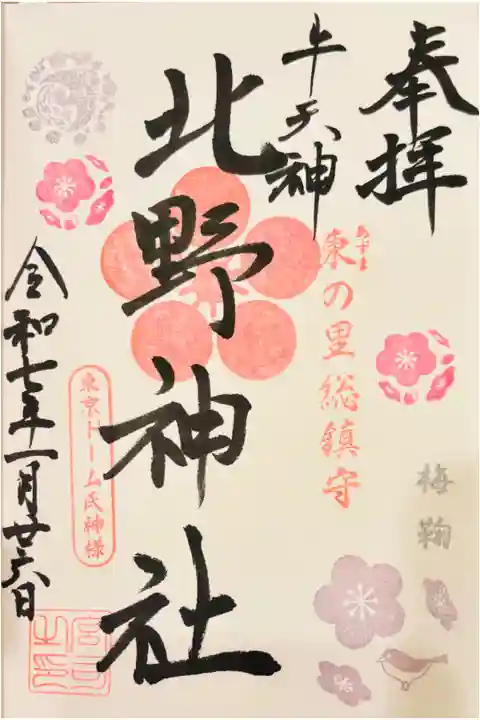 奉拝
あずま
東の里総鎮守
梅鞠
牛天神
北野神社
東京ドーム氏神様
令和七年十一月廿六日
宮司之印